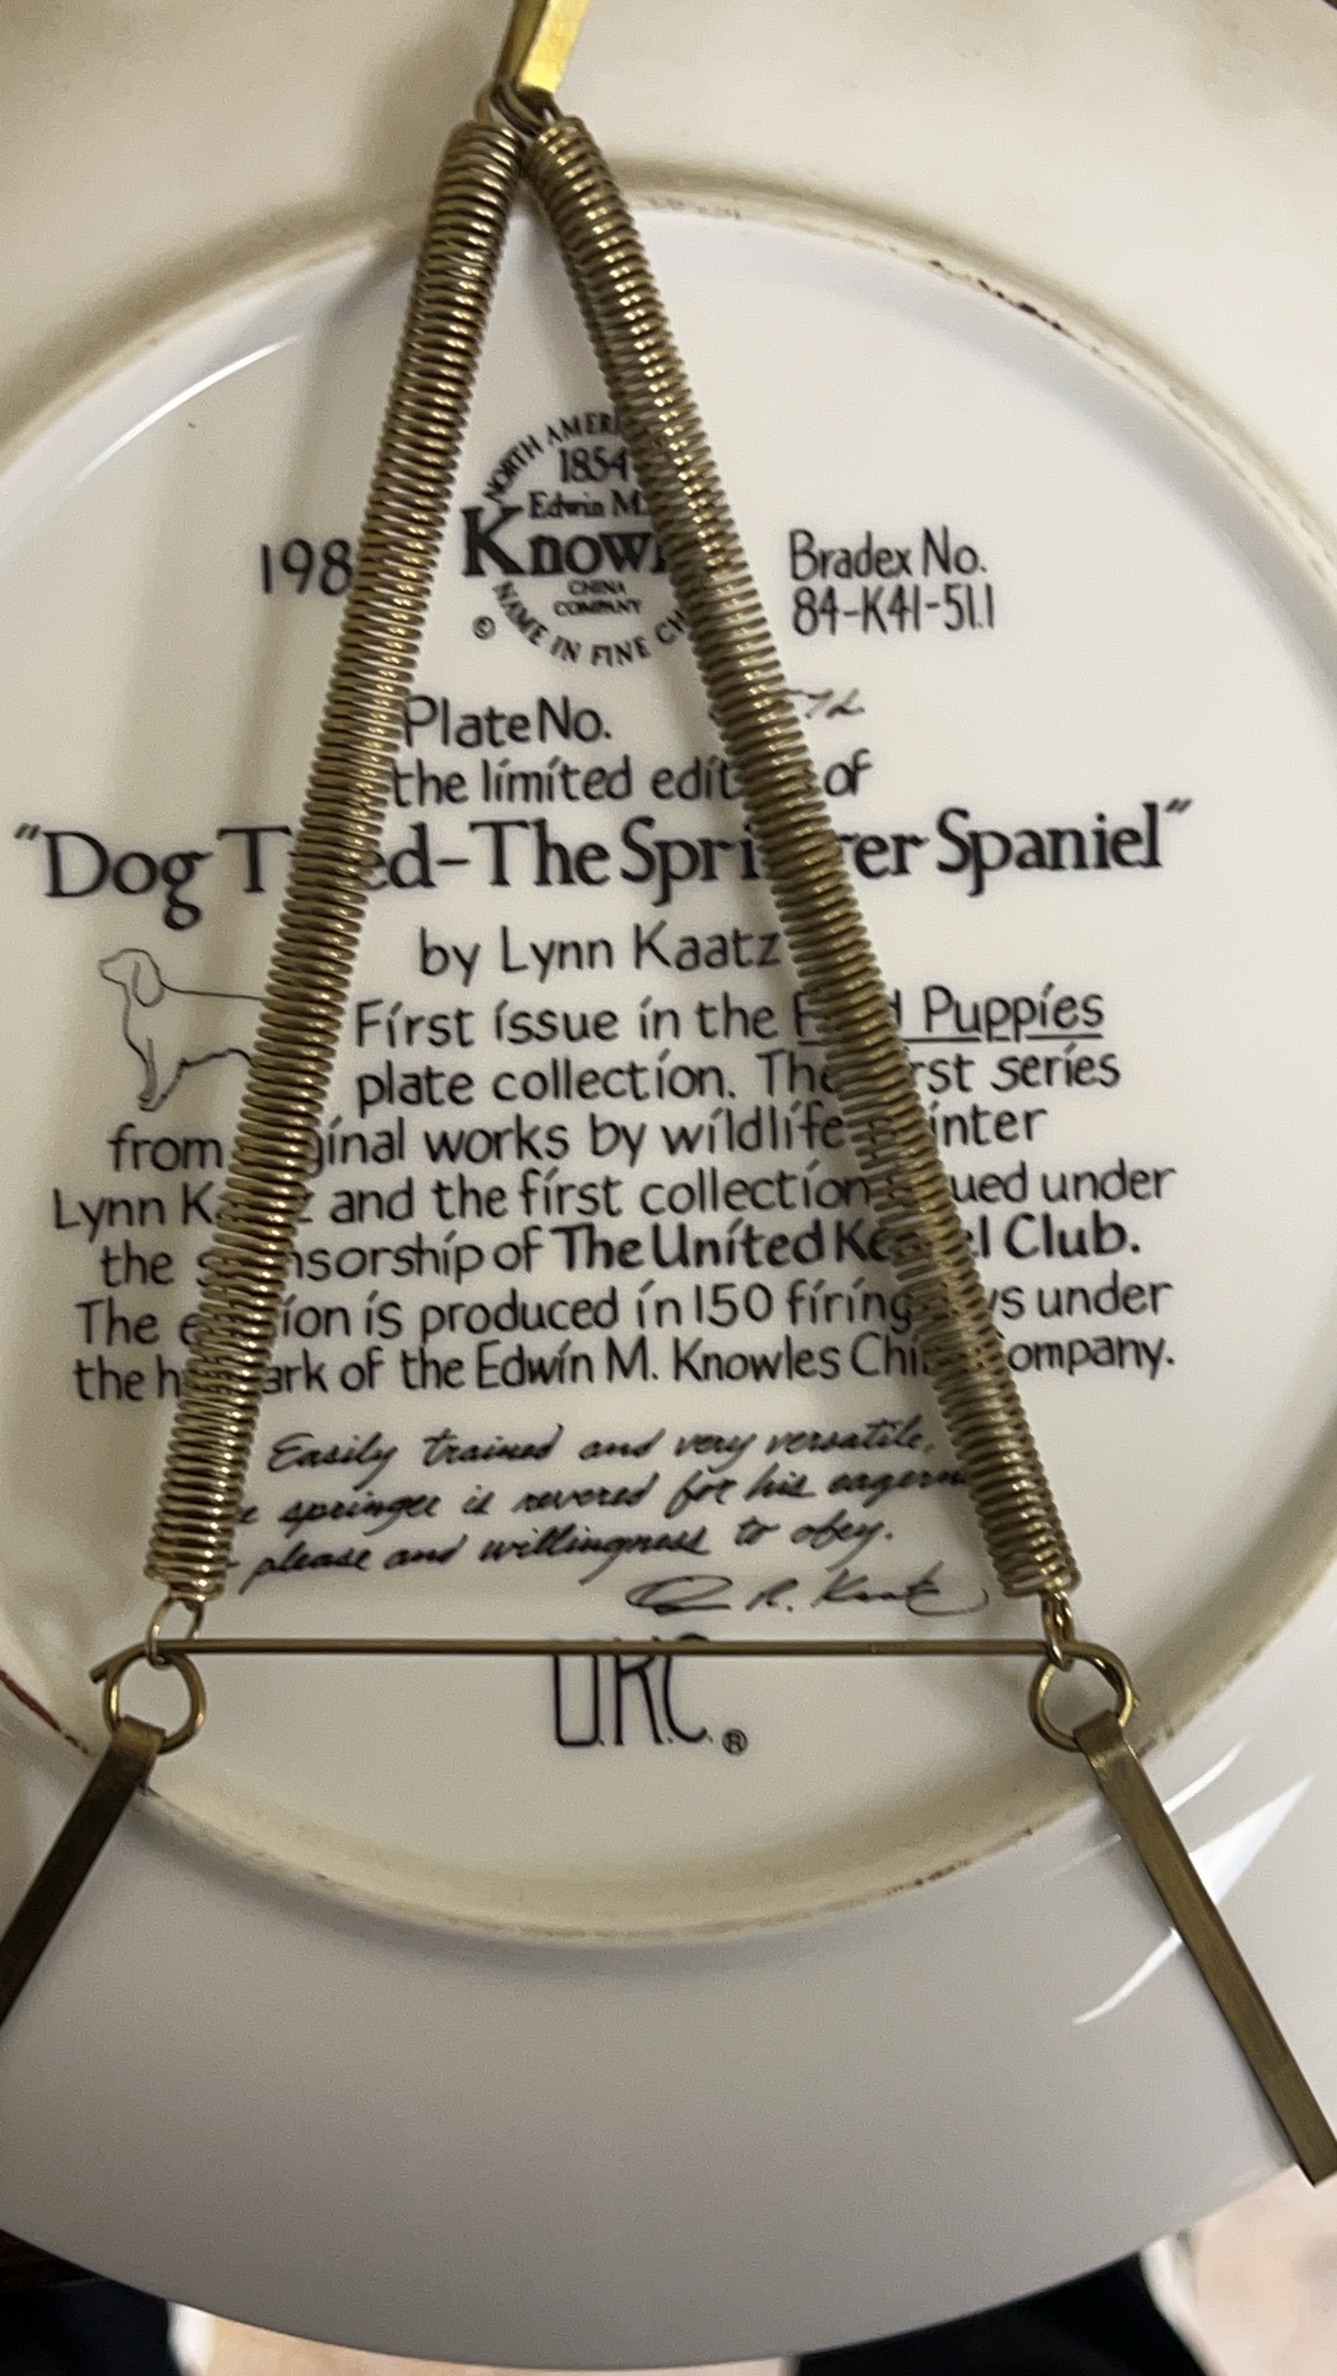 NORTH AMERI
1854
Edwin M.
Knowl
CHINA
COMPANY
© NAME IN FINE CH
198
Bradex No.
84-K41-51.1
Plate No.
the limited edit of
"Dog T ed-The Spri er Spaniel"
by Lynn Kaatz
First issue in the F d Puppies
plate collection. The rst series
from ginal works by wildlife inter
Lynn Ka z and the first collection ued under
the s nsorship of The United Ke el Club.
The e ion is produced in 150 firing ys under
the h ark of the Edwin M. Knowles Chi ompany.
Easily trained and very versatile,
e springer is revered for his eagern
please and willingness to obey.
R. Kaatz
U.K.C.®